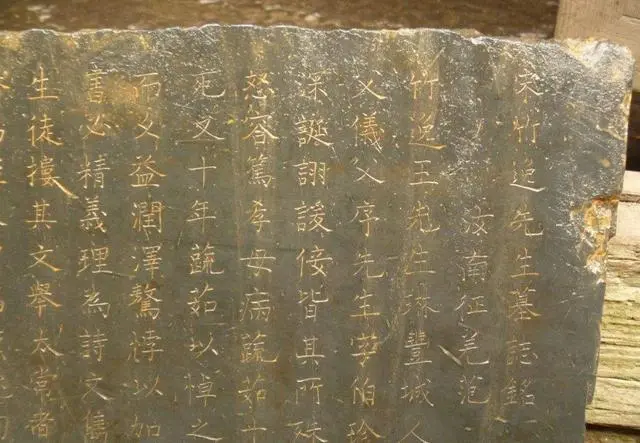 竹逸先生墓誌銘
汝南征羌范
竹逸王先生琳豐城人
父儀父序先生字伯珍
深誕詡諼佞皆其所
怒容篤孝母病蔬茹十
死又十年蔬茹以悼之
而文益潤澤驁悖以如
書必精義理為詩文雋
生徒摟其文舉太常者